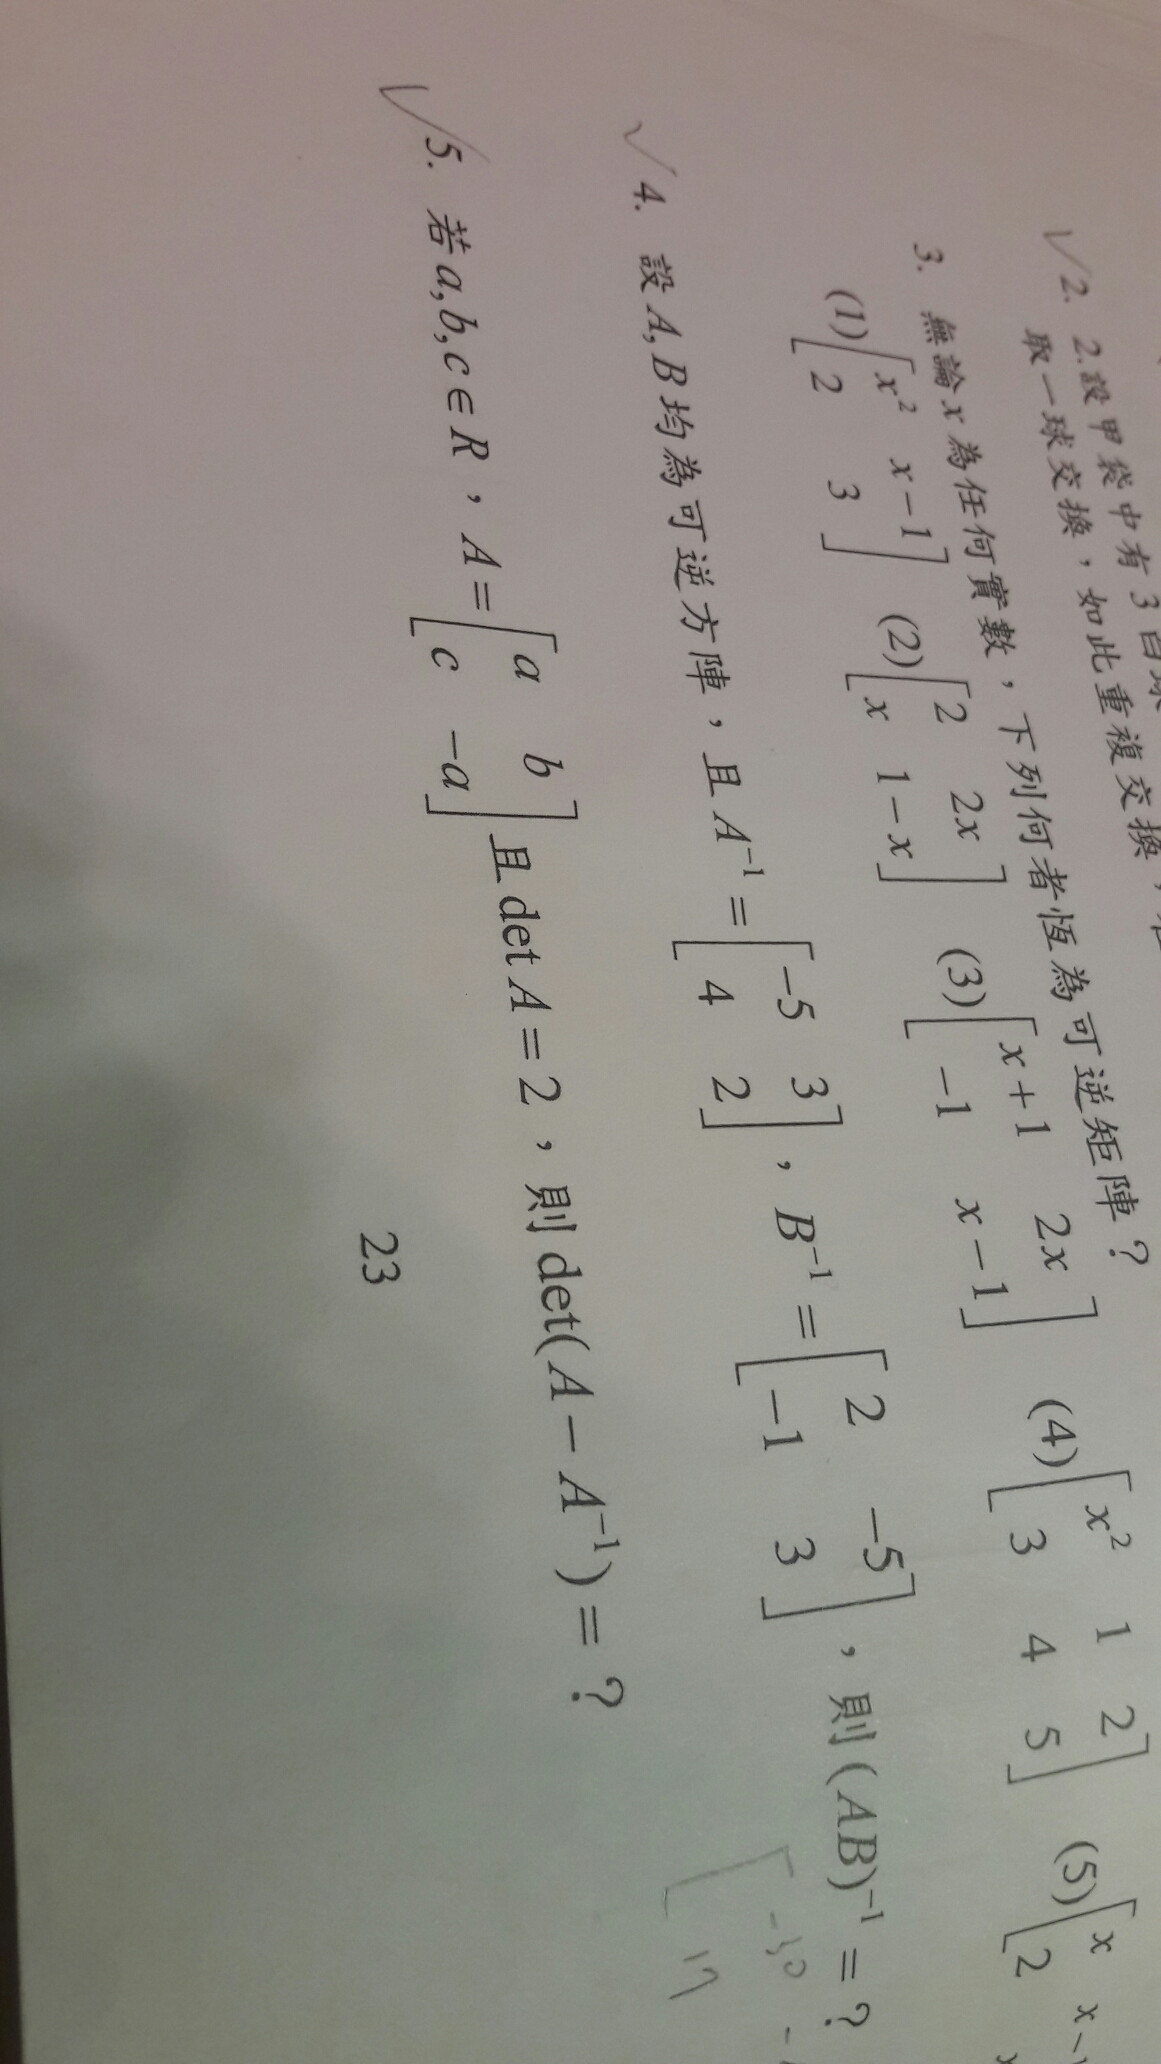 √2. 2.設甲袋中有3白球
取一球交換，如此重複交換，
3. 無論x為任何實數，下列何者恆為可逆矩陣？
(1)[x² x-1 (2)[2 2x (3)[x+1 2x (4)[x² 1 2 (5)[x
2 3] x 1-x] -1 x-1] 3 4 5] 2
√4. 設A,B均為可逆方陣，且A⁻¹=[-5 3; 4 2]，B⁻¹=[2 -5; -1 3]，則(AB)⁻¹=？
√5. 若a,b,c∈R，A=[a b; c -a]且det A=2，則det(A-A⁻¹)=？
17
23